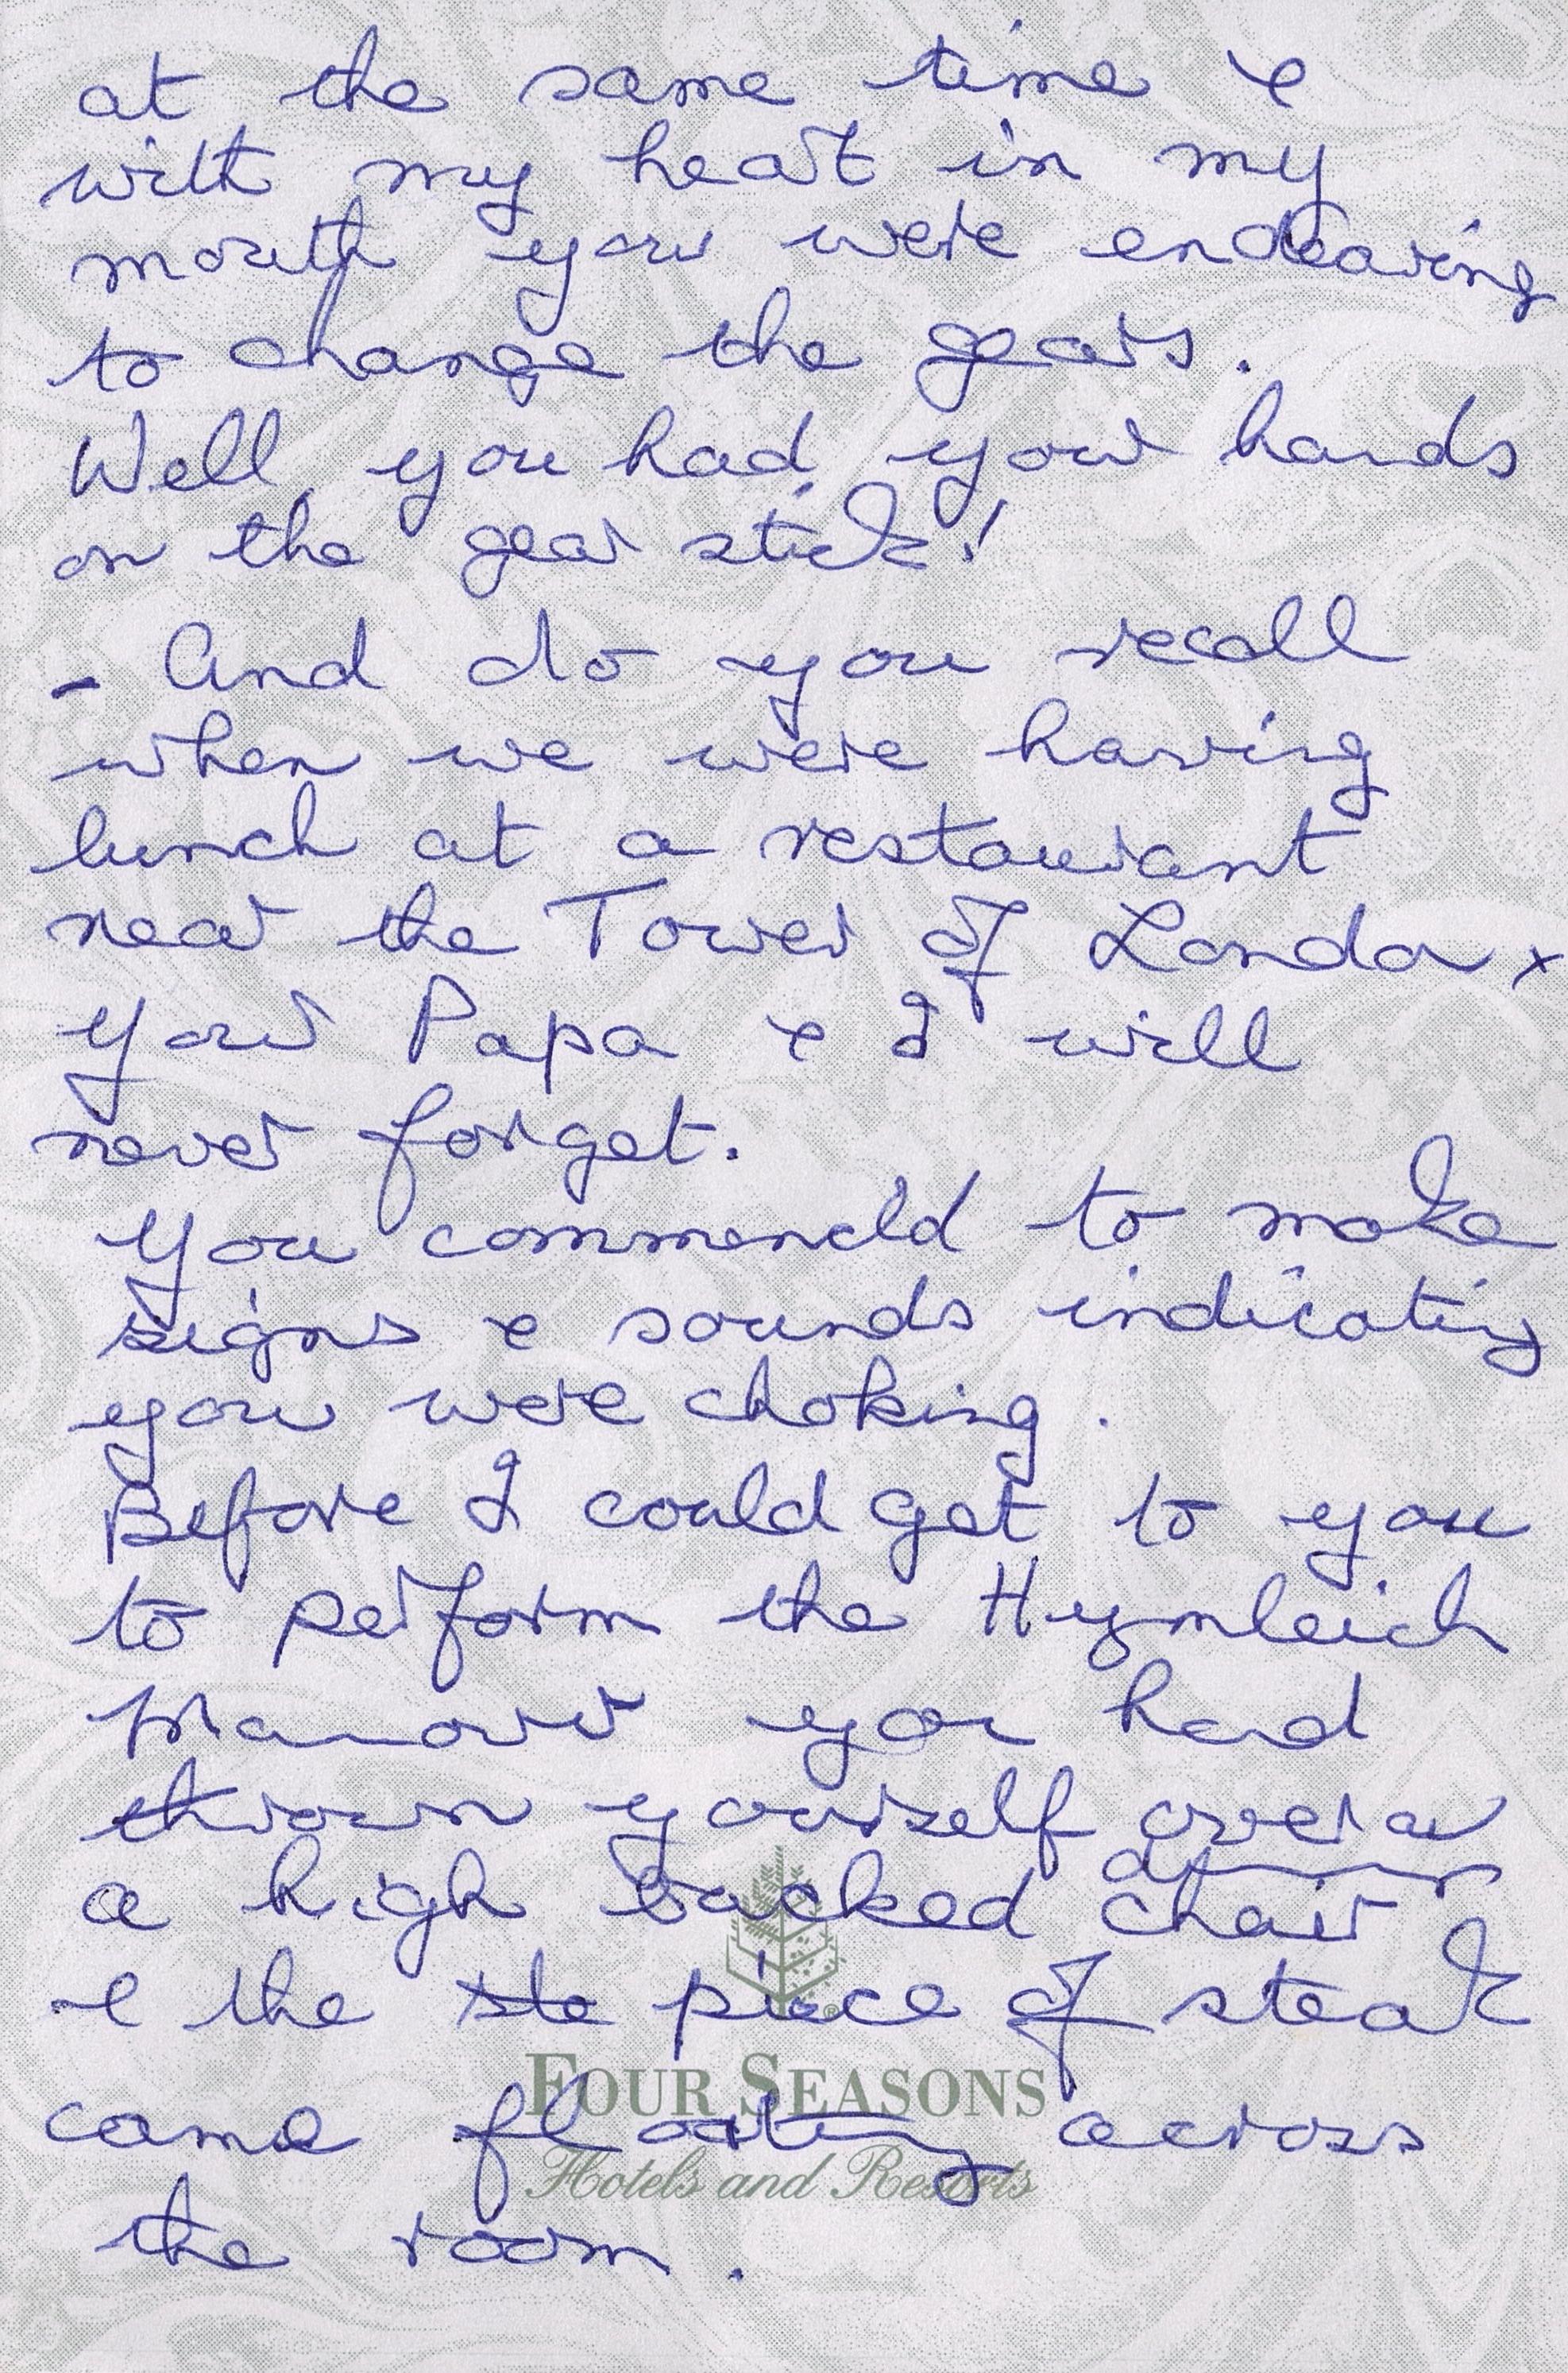 at the same time &
with my heart in my
mouth you were endeaving
to change the gears.
Well, you had your hands
on the gear stick!
- And do you recall
when we were having
lunch at a restaurant
near the Tower of London x
your Papa & I will
never forget.
You commenc'd to make
signs & sounds indicating
you were choking.
Before I could get to you
to perform the Hymleich
Manovr you had
thrown yourself over a
a high backed chair
& the ste piece of steak
FOUR SEASONS
came floating across
Hotels and Resorts
the room.